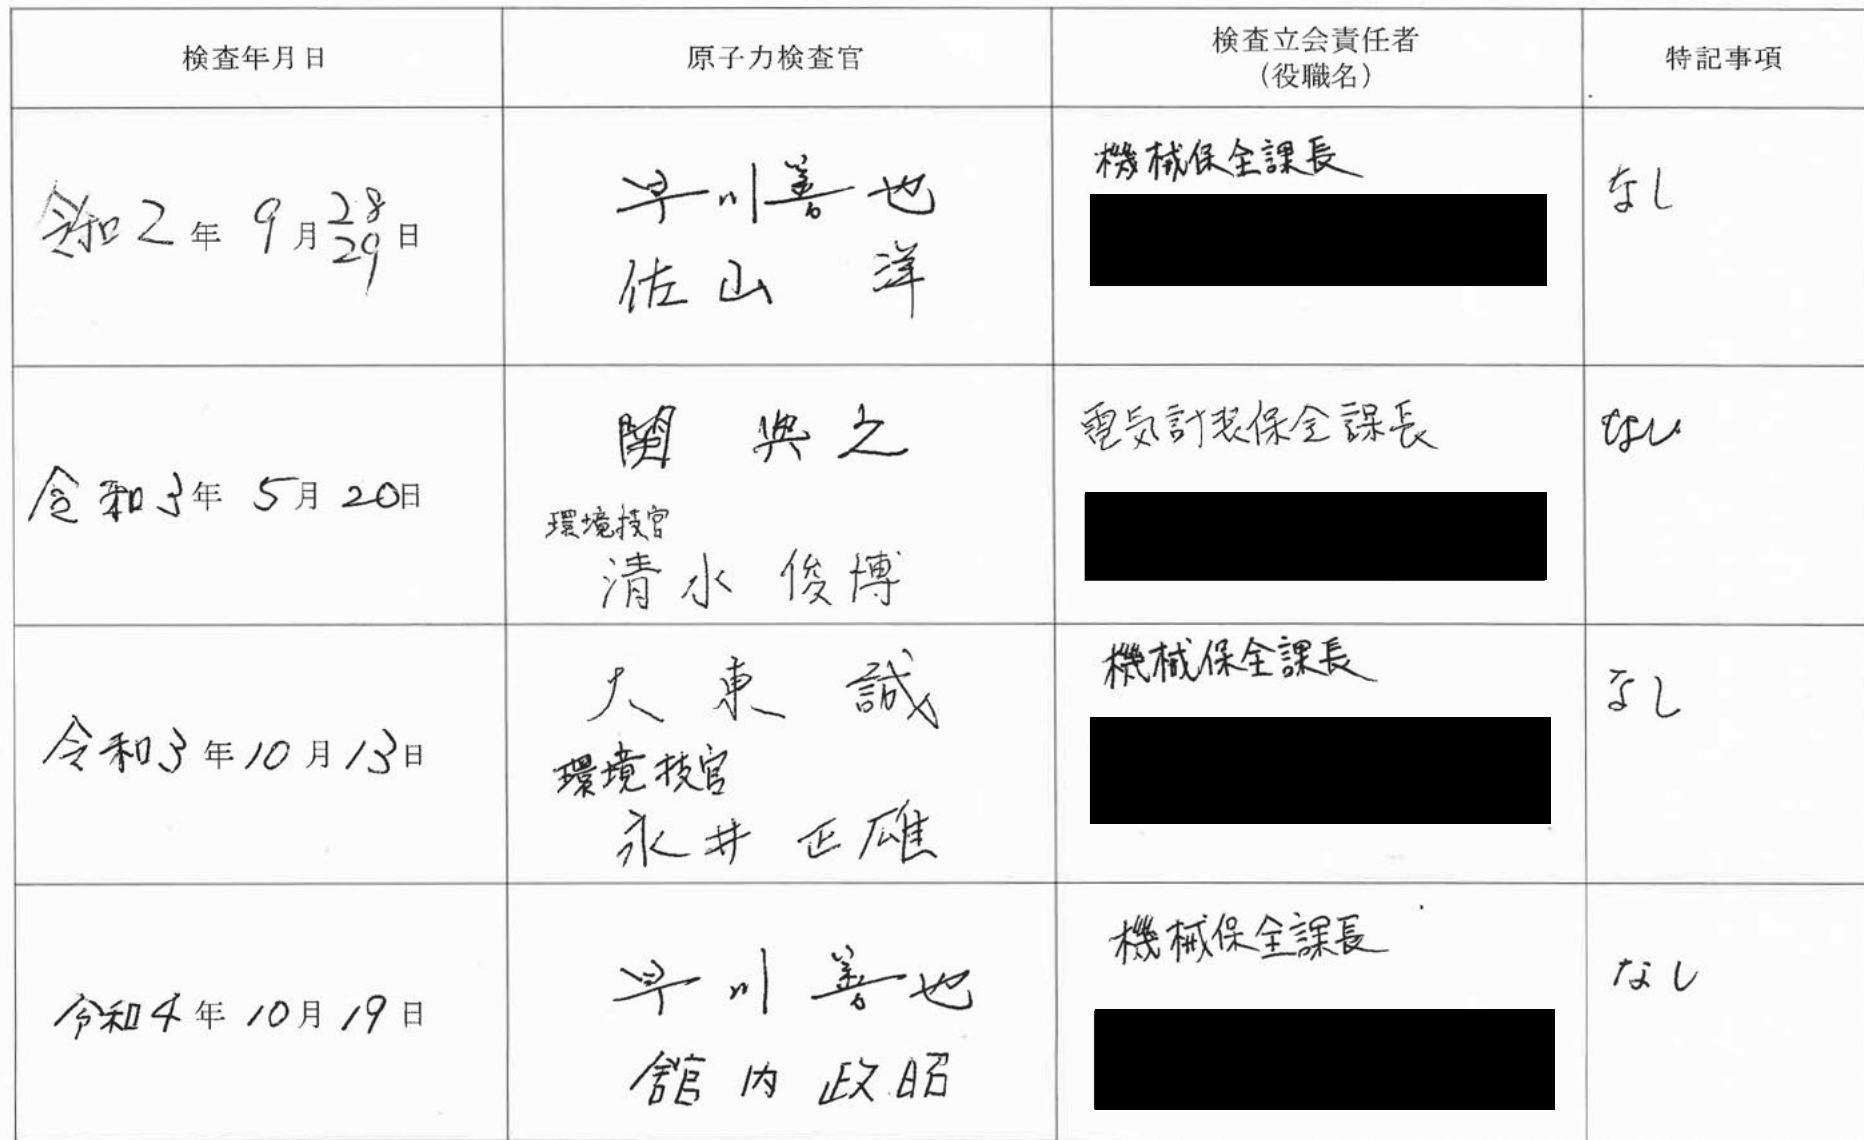 検査年月日
原子力検査官
検査立会責任者
(役職名)
特記事項
令和2年9月28 29日
早川善也
佐山 洋
機械保全課長
なし
令和3年5月20日
関 典之
環境技官
清水 俊博
電気計装保全課長
なし
令和3年10月13日
大東 誠
環境技官
永井 正雄
機械保全課長
なし
令和4年10月19日
早川善也
舘内政昭
機械保全課長
なし